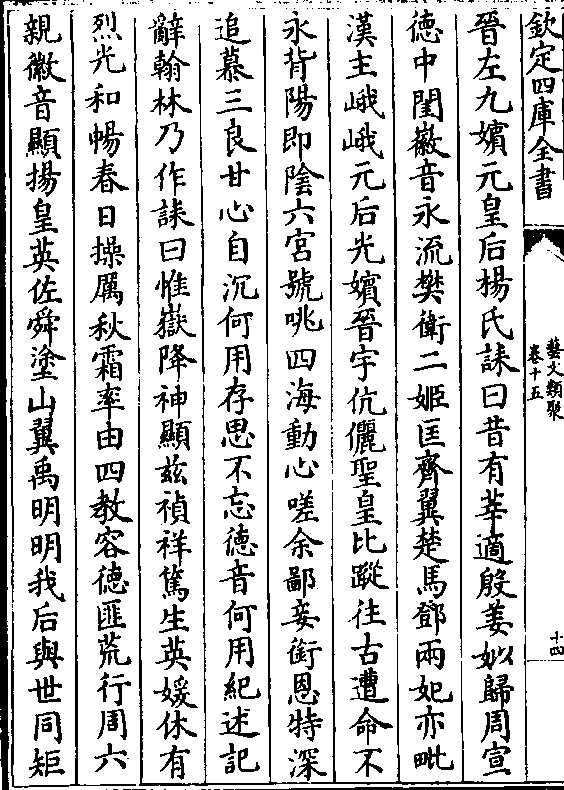 欽定四庫全書
藝文類聚
卷十五
十四
晉左九嬪元皇后楊氏誄曰昔有莘適殷姜姒歸周宣
德中閨徽音永流樊衛二姬匡齊翼楚馬鄧兩妃亦毗
漢主峨峨元后光嬪晉宇伉儷聖皇比蹤往古遭命不
永背陽即陰六宮號咷四海動心嗟余鄙妾銜恩特深
追慕三良甘心自沉何用存思不忘德音何用紀述記
辭翰林乃作誄曰惟嶽降神顯茲禎祥篤生英媛休有
烈光和暢春日操厲秋霜率由四教容德匪荒行周六
親徽音顯揚皇英佐舜塗山翼禹明明我后與世同矩